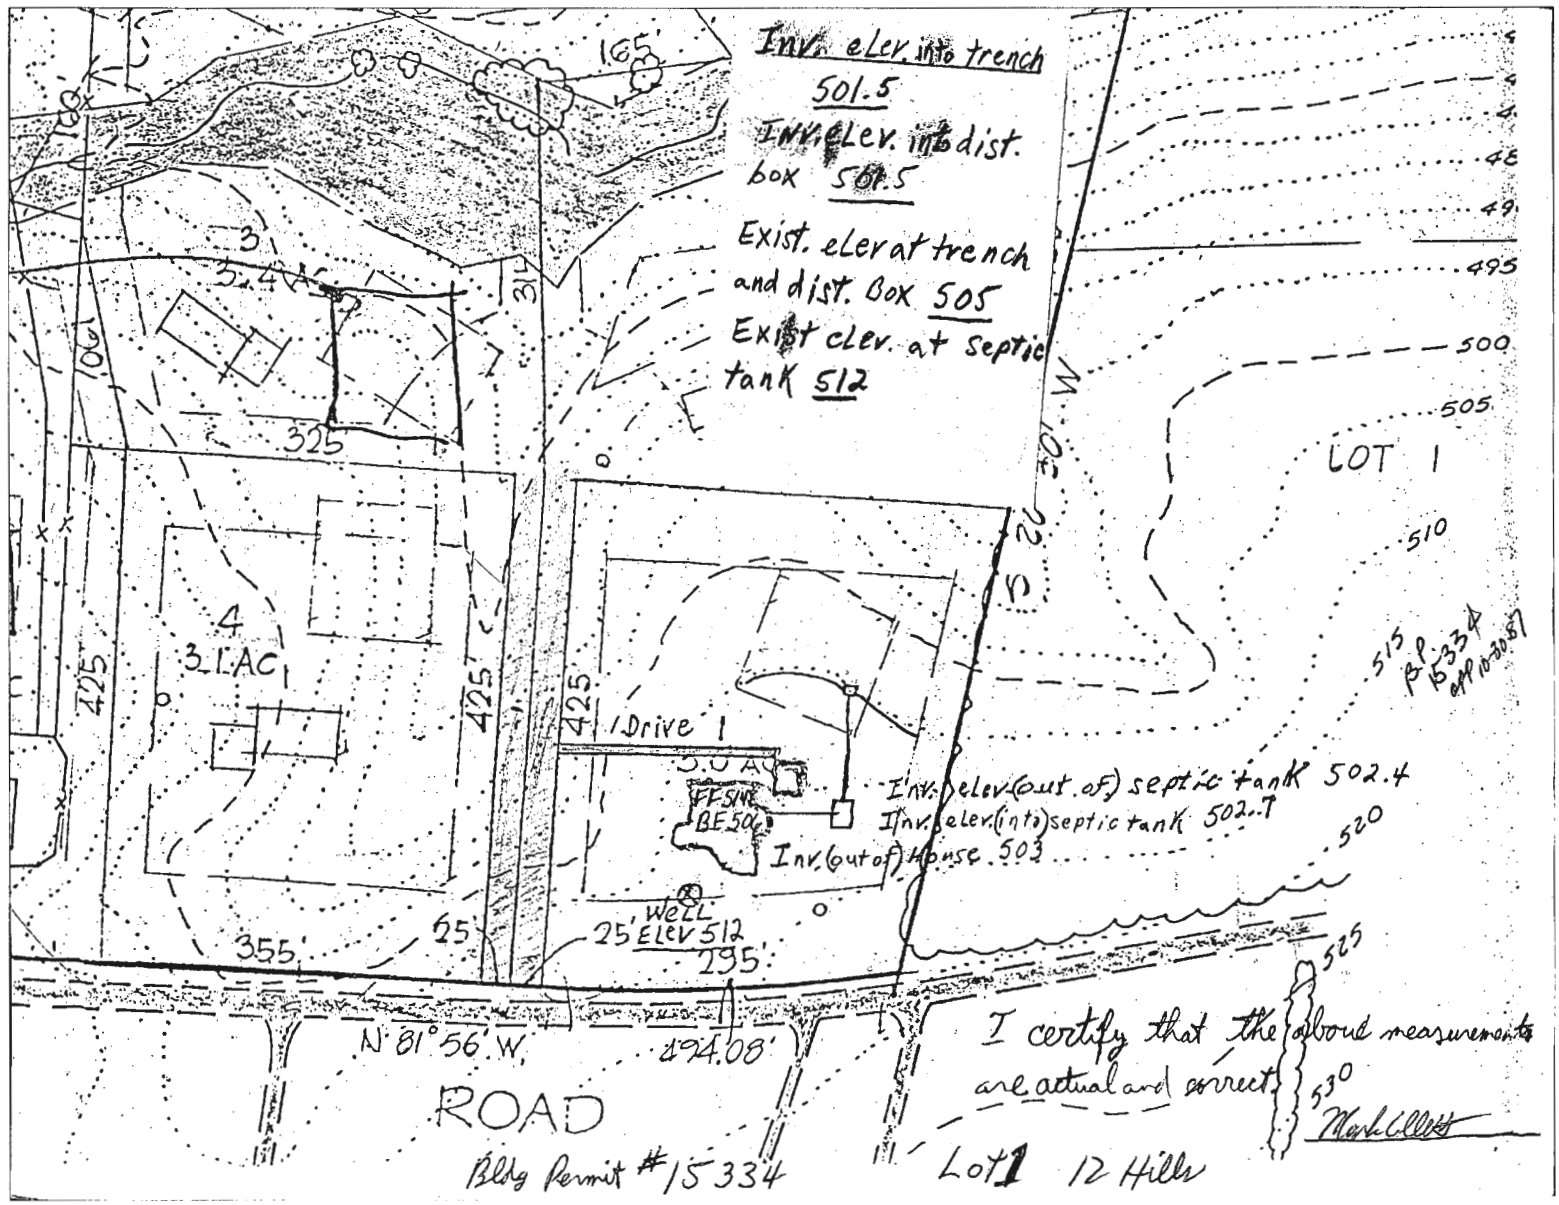 165'
160
Inv. elev. into trench
501.5
Inv. elev. into dist.
box 501.5
Exist. elev at trench
and dist. Box 505
Exist elev. at septic
tank 512
48
49
495
500
505
LOT 1
510
515
B.P.
15334
app 10-30-87
3
3.4 A
1061
314
325'
S 22° 30' W
4
3.1 AC
425'
425'
425'
Drive
1
3.0 AC
FF 514
BE 506
Inv. elev. (out of) septic tank 502.4
Inv. elev. (into) septic tank 502.7
Inv. (out of) House 503
520
Well
Elev 512
25'
25'
355'
295'
525
N. 81° 56' W.
494.08'
I certify that the above measurements
are actual and correct
530
ROAD
Bldg Permit # 15334
Lot 1 12 Hills